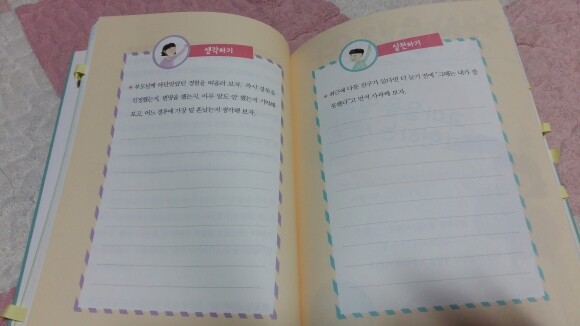 생각하기
부모님께 야단맞았던 경험을 떠올려 보자. 즉시 잘못을
인정했는지, 변명을 했는지, 아무 말도 안 했는지 기억해
보고, 어느 경우에 가장 덜 혼났는지 생각해 보자.
실천하기
최근에 다툰 친구가 있다면 더 늦기 전에 "그때는 내가 잘
못했다"고 먼저 사과해 보자.